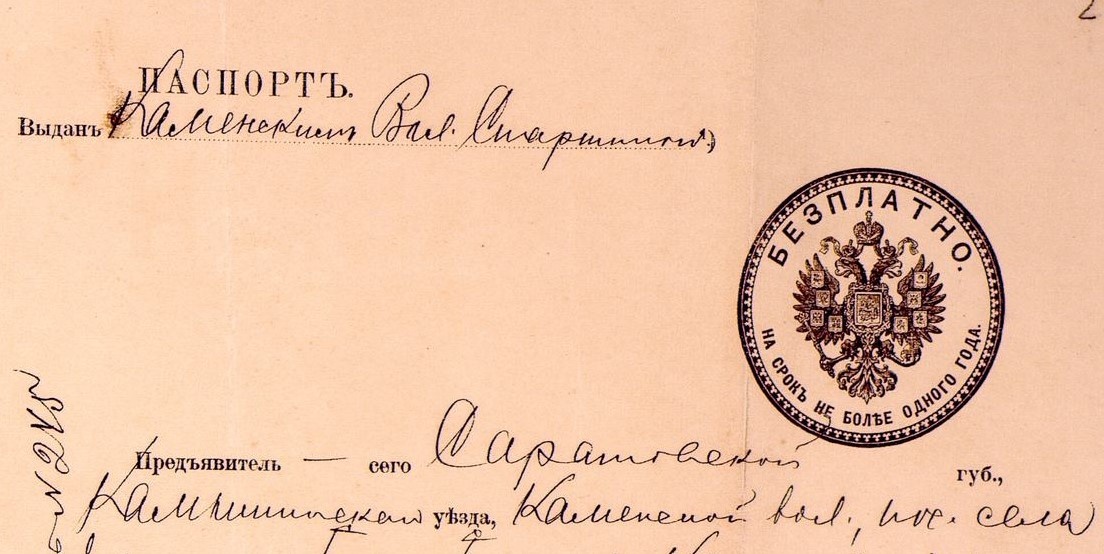 2
ПАСПОРТЪ.
Выданъ Каменскимъ Вол. Старшиной)
БЕЗПЛАТНО.
НА СРОКЪ НЕ БОЛѢЕ ОДНОГО ГОДА.
Предъявитель — сего Саратовской губ.,
Камышинскаго уѣзда, Каменской вол., пос. села